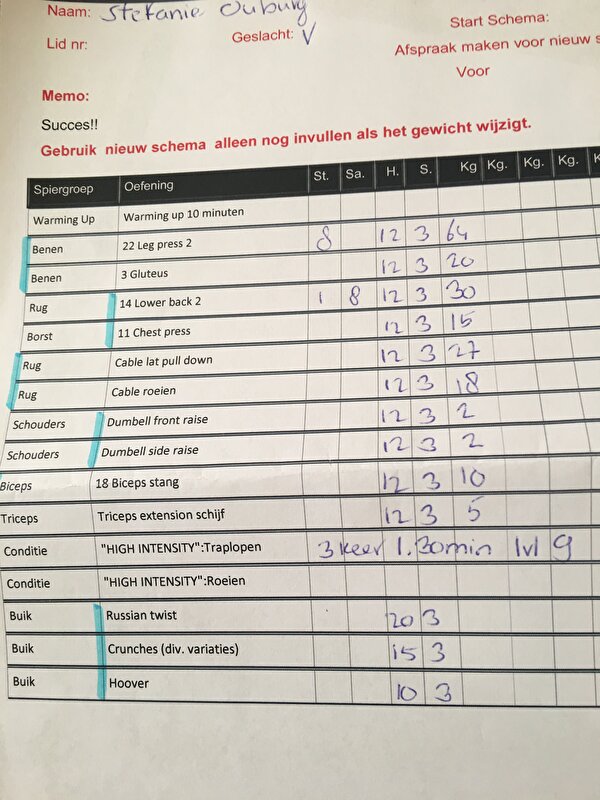 Naam: Stefanie Ouburg
Lid nr:
Geslacht: V
Start Schema:
Afspraak maken voor nieuw s
Voor
Memo:
Succes!!
Gebruik nieuw schema alleen nog invullen als het gewicht wijzigt.
Spiergroep Oefening St. Sa. H. S. Kg Kg. Kg. Kg. K
Warming Up Warming up 10 minuten
Benen 22 Leg press 2 8 12 3 64
Benen 3 Gluteus 12 3 20
Rug 14 Lower back 2 1 8 12 3 30
Borst 11 Chest press 12 3 15
Rug Cable lat pull down 12 3 27
Rug Cable roeien 12 3 18
Schouders Dumbell front raise 12 3 2
Schouders Dumbell side raise 12 3 2
Biceps 18 Biceps stang 12 3 10
Triceps Triceps extension schijf 12 3 5
Conditie "HIGH INTENSITY":Traplopen 3 keer 1.30min lvl 9
Conditie "HIGH INTENSITY":Roeien
Buik Russian twist 20 3
Buik Crunches (div. variaties) 15 3
Buik Hoover 10 3